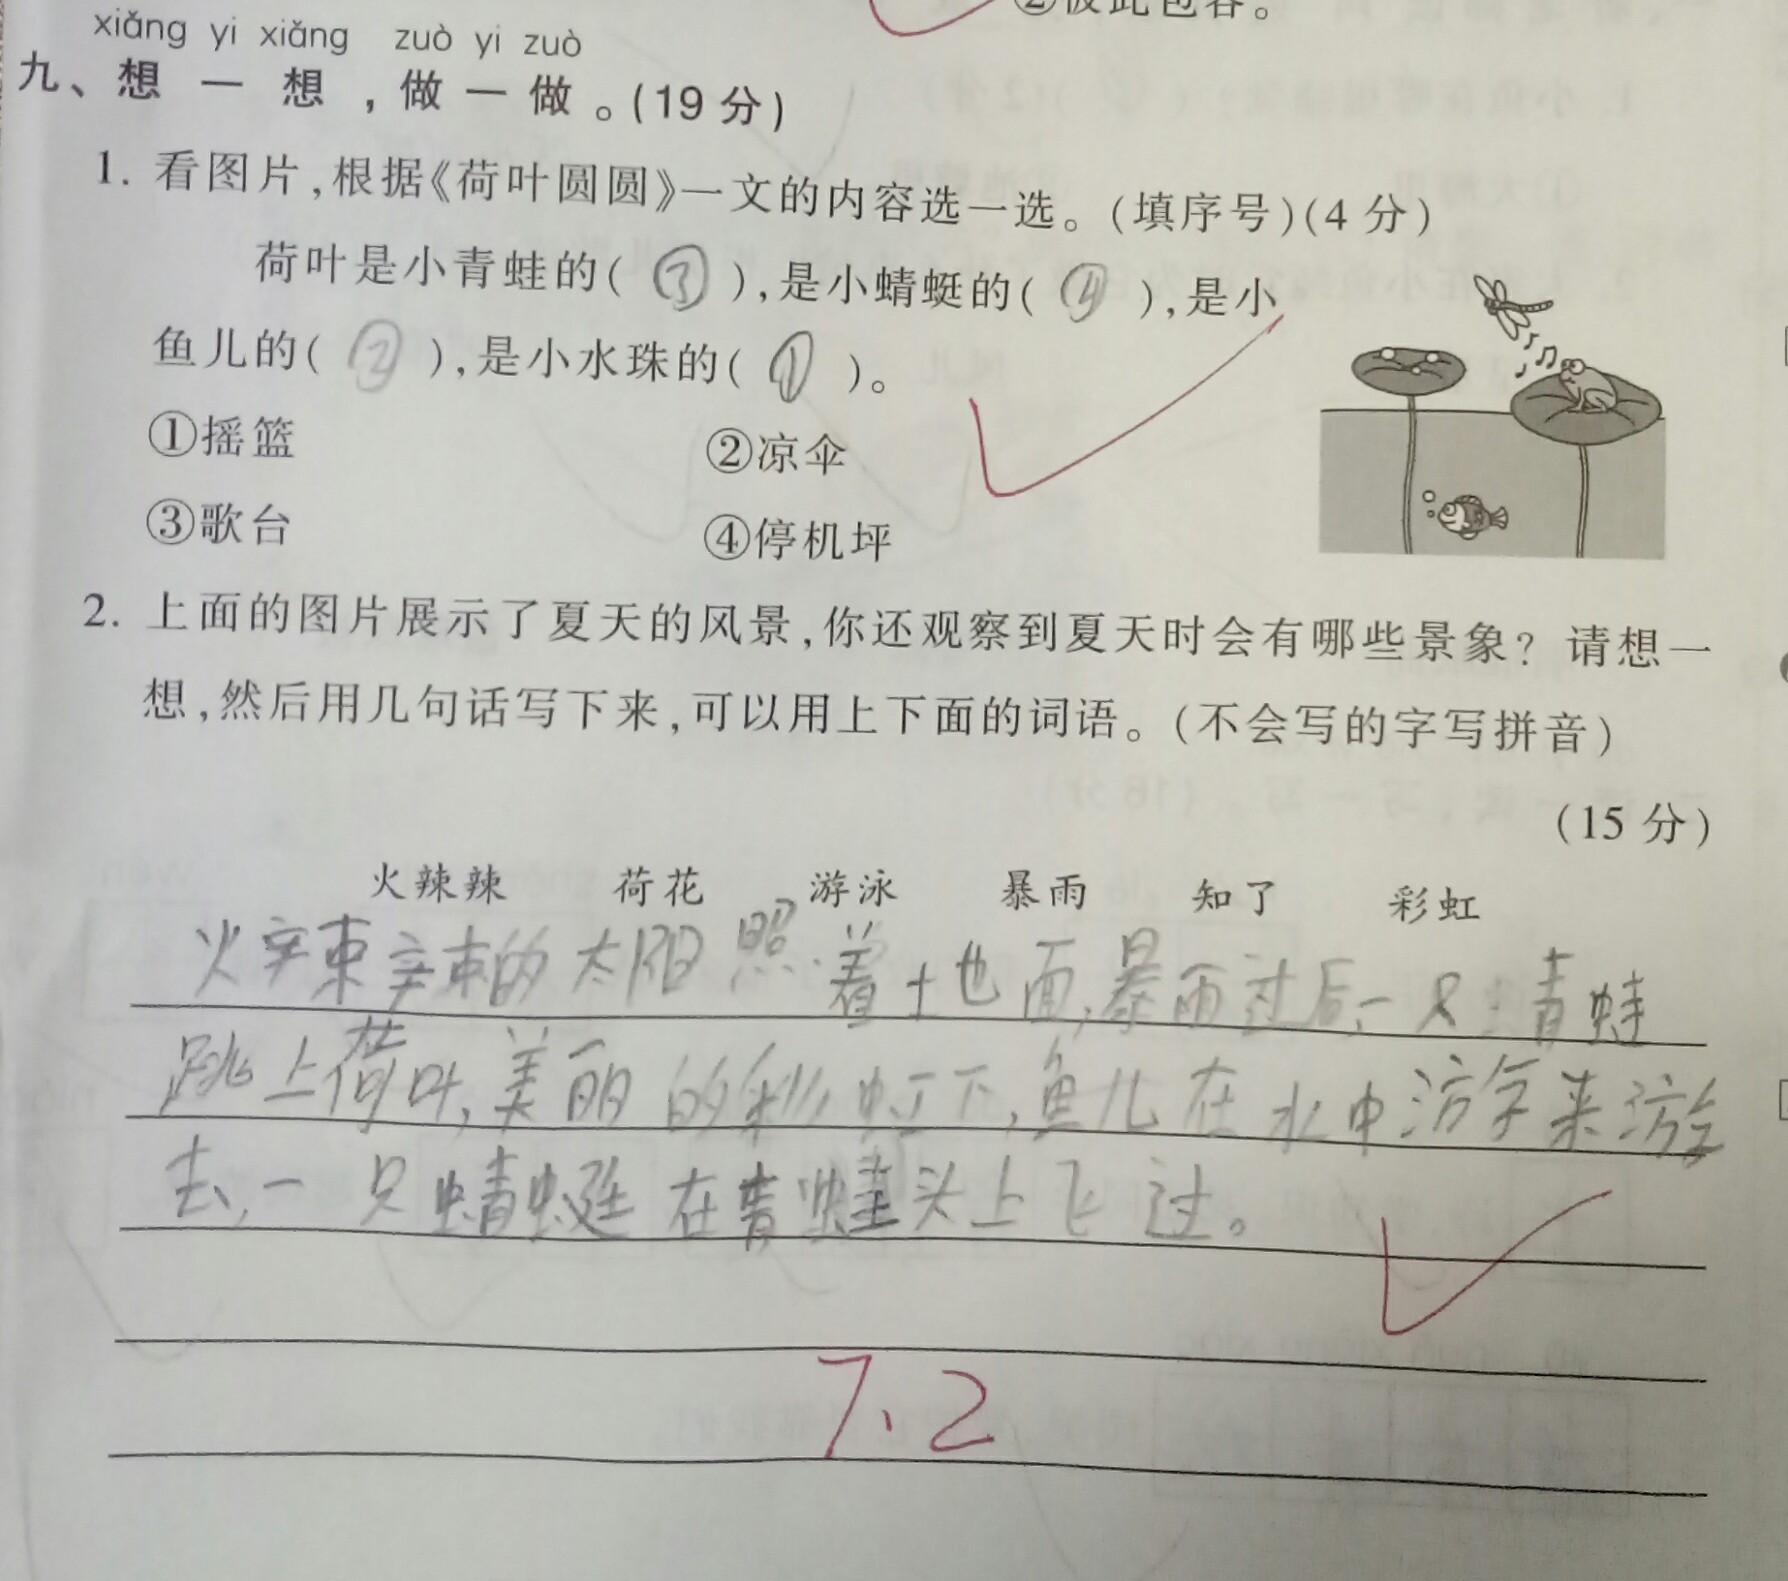 ②彼此包容。
xiǎng yi xiǎng zuò yi zuò
九、想一想,做一做。(19分)
1. 看图片,根据《荷叶圆圆》一文的内容选一选。(填序号)(4分)
荷叶是小青蛙的( ③ ),是小蜻蜓的( ④ ),是小
鱼儿的( ② ),是小水珠的( ① )。
①摇篮 ②凉伞
③歌台 ④停机坪
2. 上面的图片展示了夏天的风景,你还观察到夏天时会有哪些景象? 请想一
想,然后用几句话写下来,可以用上下面的词语。(不会写的字写拼音)
(15分)
火辣辣 荷花 游泳 暴雨 知了 彩虹
火辣辣的太阳照着土也面,暴雨过后,一只青蛙
跳上荷叶,美丽的彩虹下,鱼儿在水中游来游
去,一只蜻蜓在青蛙头上飞过。
7、2